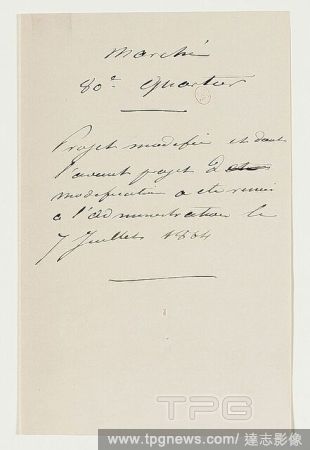 Marché
80e Quartier
Projet modifié et dont
l'avant projet de
modification a été remis
à l'administration le
7 Juillet 1864
TPG
www.tpgnews.com/達志影像